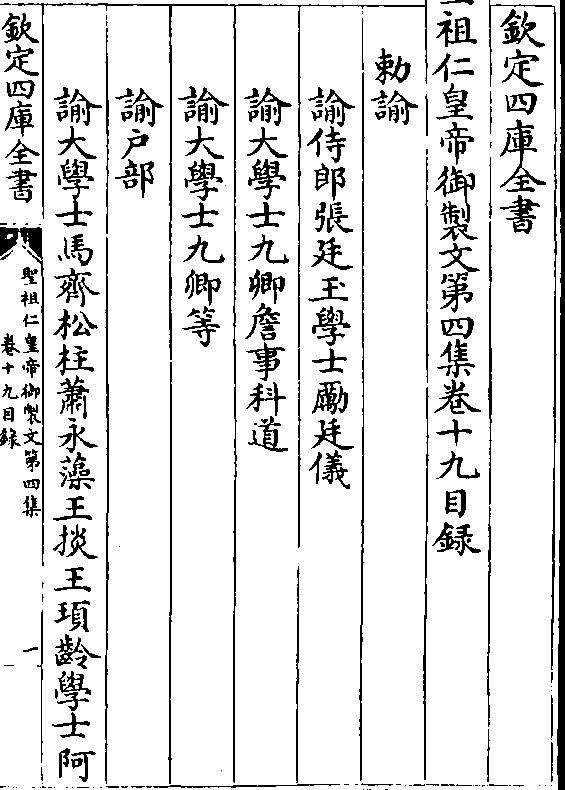 欽定四庫全書
聖祖仁皇帝御製文第四集卷十九目録
勅諭
諭侍郎張廷玉學士勵廷儀
諭大學士九卿詹事科道
諭大學士九卿等
諭户部
諭大學士馬齊松柱蕭永藻王掞王頊齡學士阿
欽定四庫全書
聖祖仁皇帝御製文第四集
卷十九目録
一